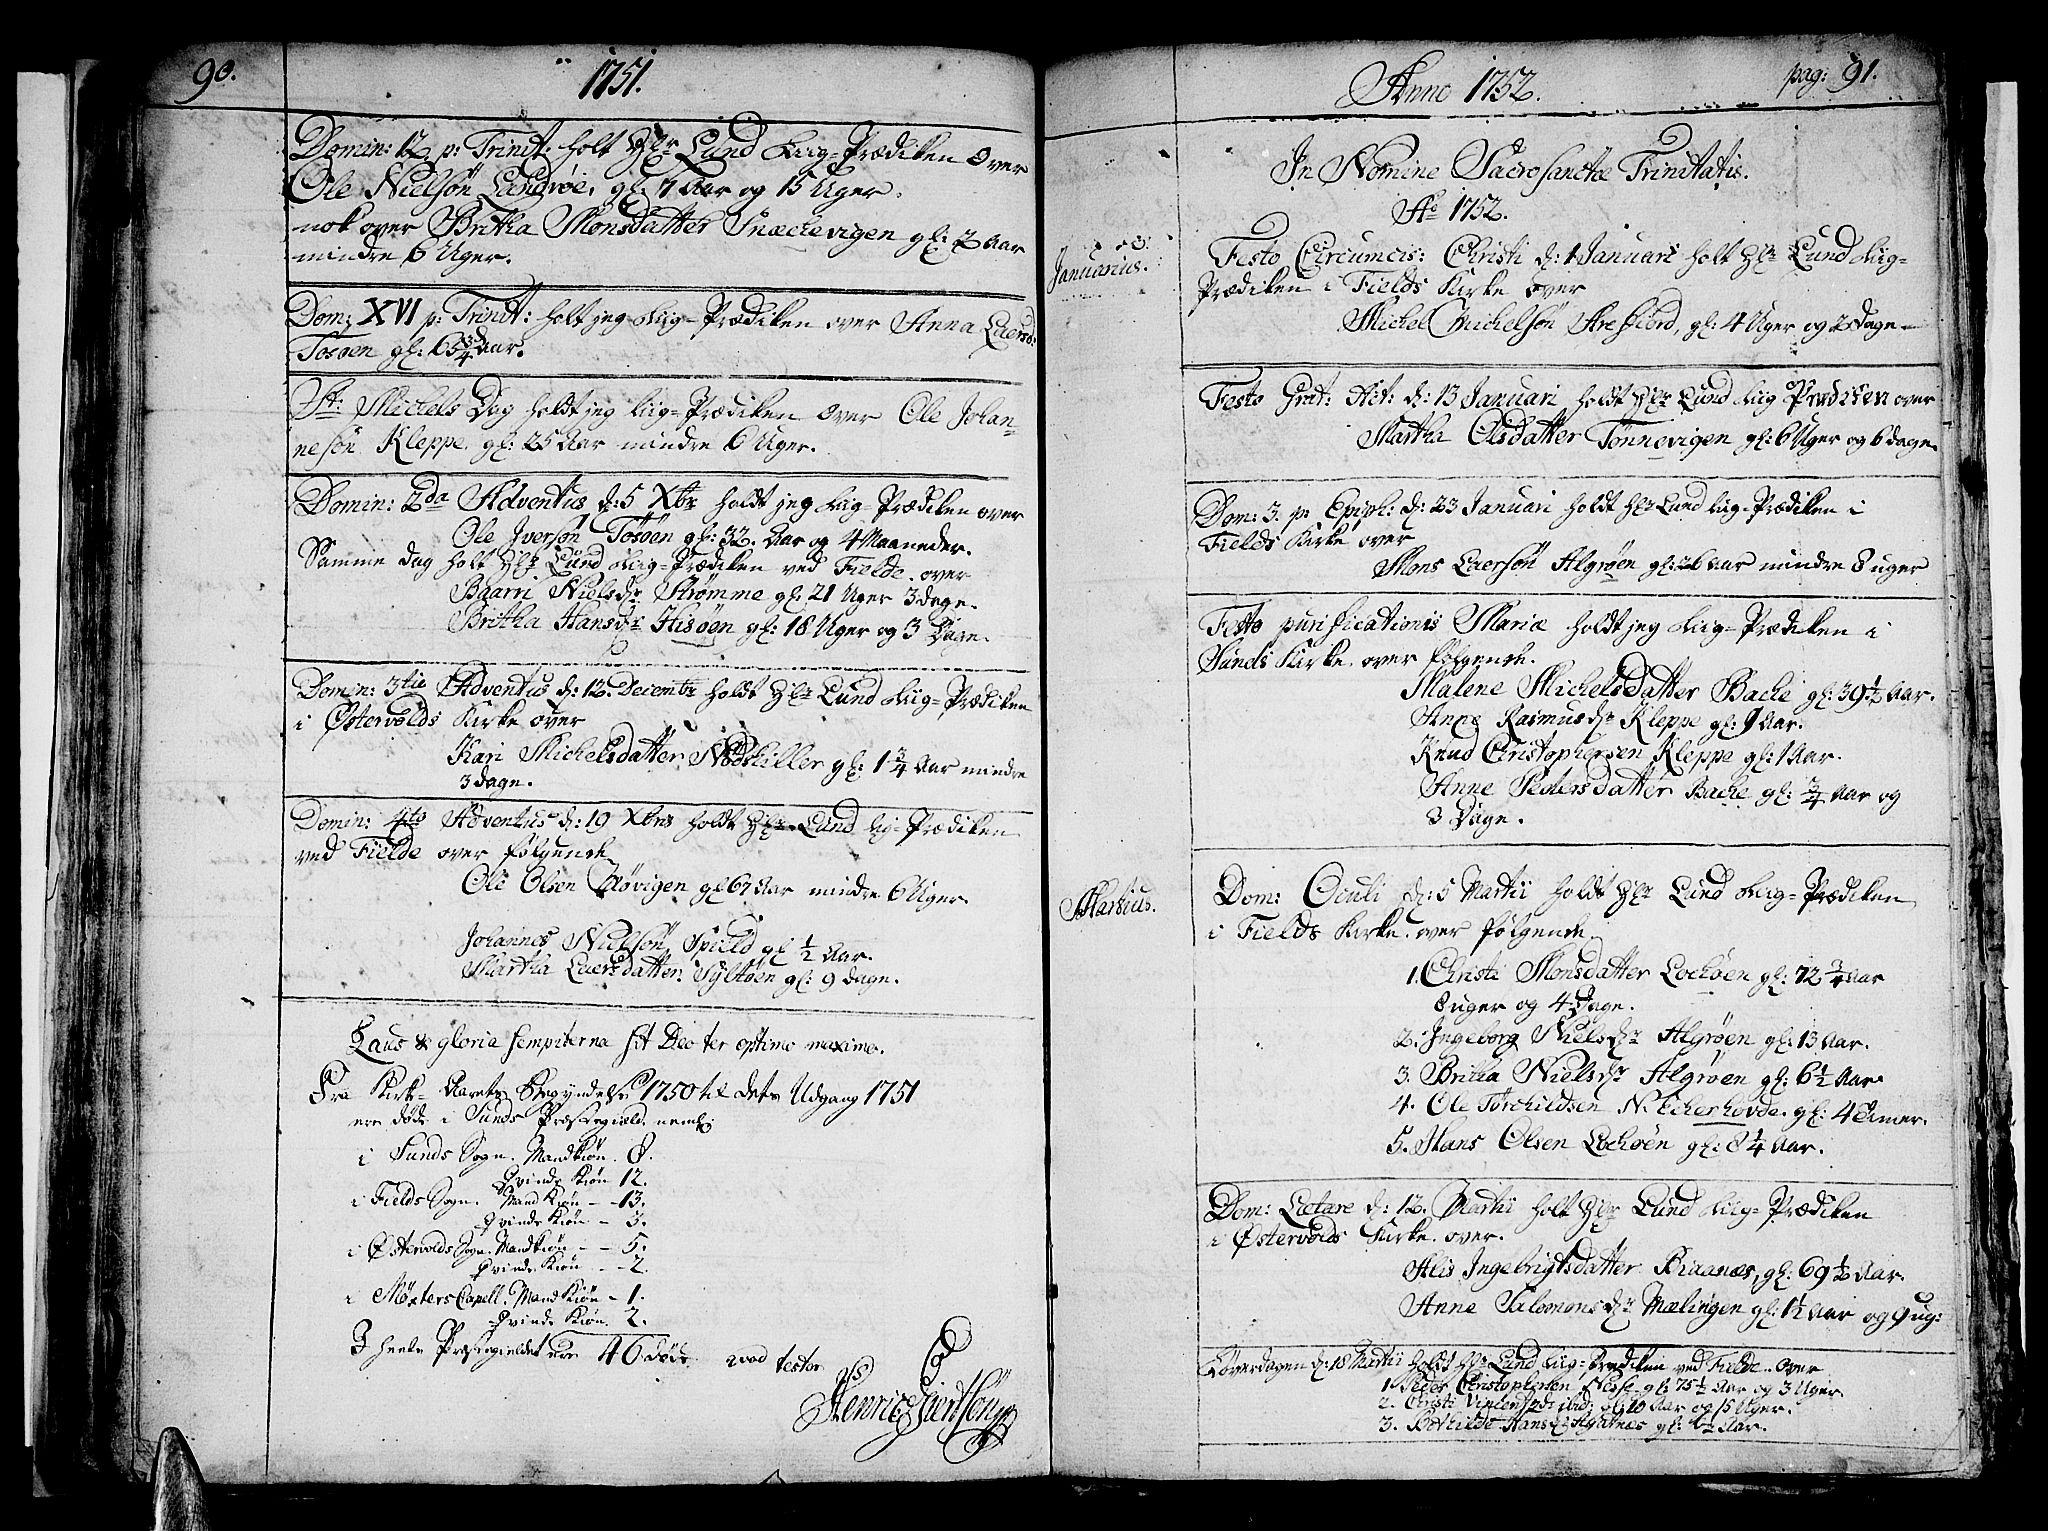 90.
1751.
Domin: 12 p: Trinit: holt Hr Lund Liig-Prædiken over
Ole Nielsøn Landrøe, gl: 7 Aar og 15 Uger.
nok over Britha Monsdatter Snechevigen gl: 2 Aar
mindre 6 Uger.
Dom: XVI p: Trinit: holt jeg Liig-Prædiken over Anna Laersd:
Tosøen gl: 65 3/4 Aar.
St: Michels Dag holdt jeg Liig-Prædiken over Ole Johan-
nesøn Kleppe gl: 25 Aar mindre 6 Uger.
Domin: 2da Adventus d: 5 Xbr holdt jeg Liig-Prædiken over
Ole Iversøn Tøsøen gl: 32 Aar og 4 Maaneder.
Samme dag holt Hr Lund Liig-Prædiken ved Fielde over
Baarni Nielsdr Strømme gl: 21 Uger 3 dage.
Britha Hansdr Hisøen gl: 18 Uger og 3 Dage.
Domin: 3tie Adventus d: 12 Decembr holdt Hr Lund Liig-Prædiken
i Østervolds Kirke over
Kari Michelsdatter Nødskiller gl: 1 3/4 Aar mindre
3 dage.
Domin: 4to Adventus d: 19 Xbris holdt Hr Lund Lig-Prædiken
ved Fielde over følgende
Ole Olsen gl 67 Aar mindre 6 Uger.
Johannes Nielsøn Spield gl 1/2 Aar.
Martha Laersdatter Syltøen gl: 9 dage.
Laus & gloria sempiterna sit Deo ter optimo maximo.
Fra Kirke-Aarets Begyndelse 1750 til dets Udgang 1751
ere døde i Sunds Præstegield neml:
i Sunds Sogn. Mandkiøn 8.
Qvinde Kiøn 12.
i Fields Sogn. Mand Kiøn -- 13.
Qvinde Kiøn - 3.
i Østervolds Sogn. Mandkiøn -- 5.
Qvinde Kiøn -- 2.
i Møxters Capell. Mand Kiøn - 1.
Qvinde Kiøn. 2.
I heele Præstegieldet ere 46 døde qvod testor
Henric Giertsen
Anno 1752.
pag: 91.
In Nomine Sacrosanctæ Trinitatis.
Ao 1752.
Januarius.
Festo Circumcis: Christi d: 1 Januari holt Hr Lund Liig-
Prædiken i Fields Kirke over
Michel Michelsøn Arefiord, gl: 4 Uger og 2 dage
Festo d: 13 Januari holdt Hr Lund Liig Prædiken over
Martha Olsdatter Tønnevigen gl: 6 Uger og 6 dage.
Dom: 3. p: Epiph: d: 23 Januari holdt Hr Lund Liig-Prædiken i
Fields Kirke over
Mons Laersøn Algrøen gl: 26 Aar mindre 8 uger
Festo purificationis Mariæ holdt jeg Liig-Prædiken i
Sunds Kirke over følgende.
Malene Michelsdatter Bache gl: 39 1/2 Aar.
Anne Rasmusdr Kleppe gl: 1 Aar.
Knud Christophersen Kleppe gl: 1 Aar.
Anne Pedersdatter Bache gl: 3/4 Aar og
3 Dage.
Martius.
Dom: Oculi d: 5 Martii holdt Hr Lund Liig-Prædiken
i Fields Kirke over følgende
1. Christi Monsdatter Lochøen gl: 72 3/4 Aar
8 uger og 4 Dage.
2. Ingeborg Nielsdr Algrøen gl: 13 Aar.
3. Britha Nielsdr Algrøen gl: 6 1/2 Aar
4. Ole Torchildsen N. Echerhovde gl: 4 Timer.
5. Hans Olsen Lochøen gl: 8 1/4 Aar.
Dom: Lætare d: 12. Martii holt Hr Lund Liig-Prædiken
i Østervolds Kirke over.
Alis Ingebrigtsdatter Riaanes, gl: 69 1/2 Aar.
Anne Salomonsdr Mælingen gl: 1 1/2 Aar og 9 ug:
Løverdagen d: 18 Martii holdt Hr Lund Liig-Prædiken ved Fielde over
1. Peder Christophersen Nesse gl: 75 1/2 Aar og 3 Uger
2. Christi 10 Aar og 15 Uger.
3. Bothilde Hansdr Algarnæs gl: 6 1/2 Aar.